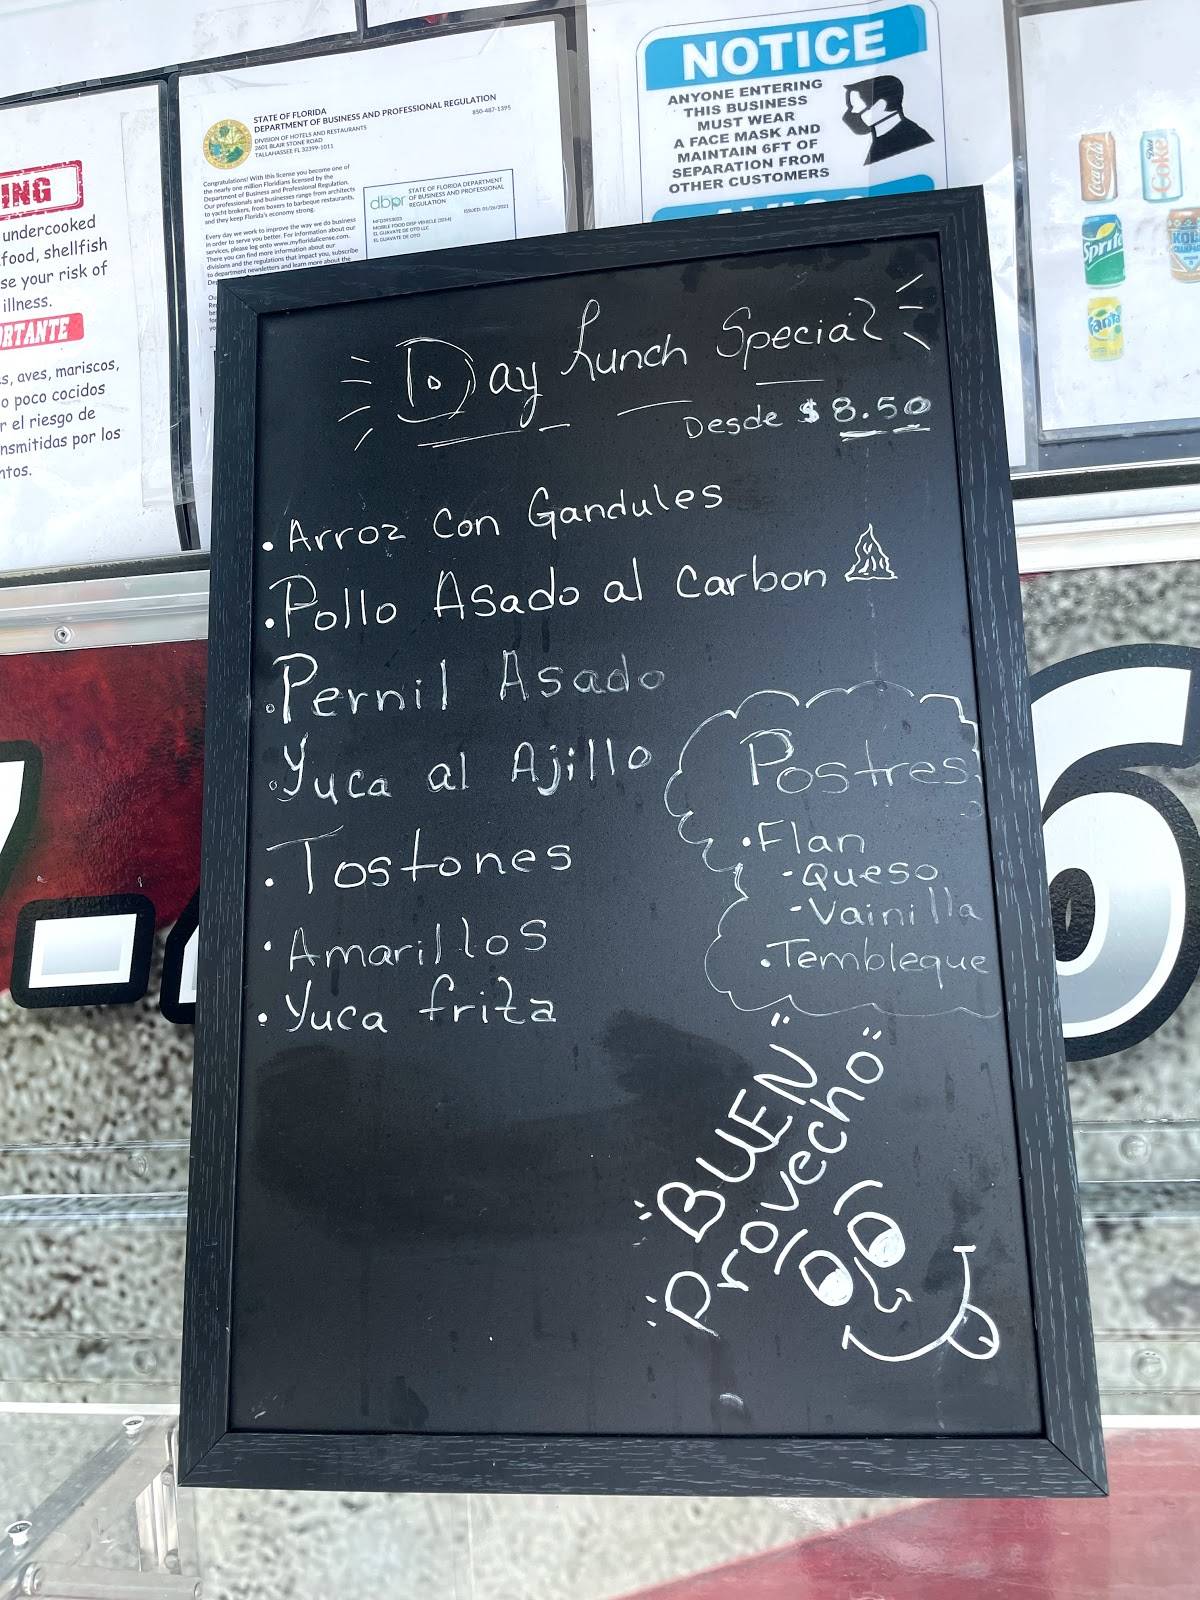 ING
undercooked
food, shellfish
se your risk of
illness.
RTANTE
s, aves, mariscos,
o poco cocidos
r el riesgo de
nsmitidas por los
ntos.
STATE OF FLORIDA
DEPARTMENT OF BUSINESS AND PROFESSIONAL REGULATION
850-487-1395
DIVISION OF HOTELS AND RESTAURANTS
2601 BLAIR STONE ROAD
TALLAHASSEE FL 32399-1011
Congratulations! With this license you become one of
the nearly one million Floridians licensed by the
Department of Business and Professional Regulation.
Our professionals and businesses range from architects
to yacht brokers, from boxers to barbeque restaurants,
and they keep Florida's economy strong.
Every day we work to improve the way we do business
in order to serve you better. For information about our
services, please log onto www.myfloridalicense.com.
There you can find more information about our
divisions and the regulations that impact you, subscribe
to department newsletters and learn more about the
dbpr
STATE OF FLORIDA DEPARTMENT
OF BUSINESS AND PROFESSIONAL
REGULATION
ISSUED: 01/26/2021
MOBILE FOOD DISP VEHICLE (2014)
EL GUAVATE DE OTO LLC
EL GUAVATE DE OTO
NOTICE
ANYONE ENTERING
THIS BUSINESS
MUST WEAR
A FACE MASK AND
MAINTAIN 6FT OF
SEPARATION FROM
OTHER CUSTOMERS
Coca-Cola
Diet
Coke
Sprite
Fanta
Day Lunch Special
Desde $8.50
• Arroz con Gandules
• Pollo Asado al Carbon
• Pernil Asado
• Yuca al Ajillo
• Tostones
• Amarillos
• Yuca frita
Postres
• Flan
- Queso
- Vainilla
• Tembleque
"BUEN"
"Provecho"
6